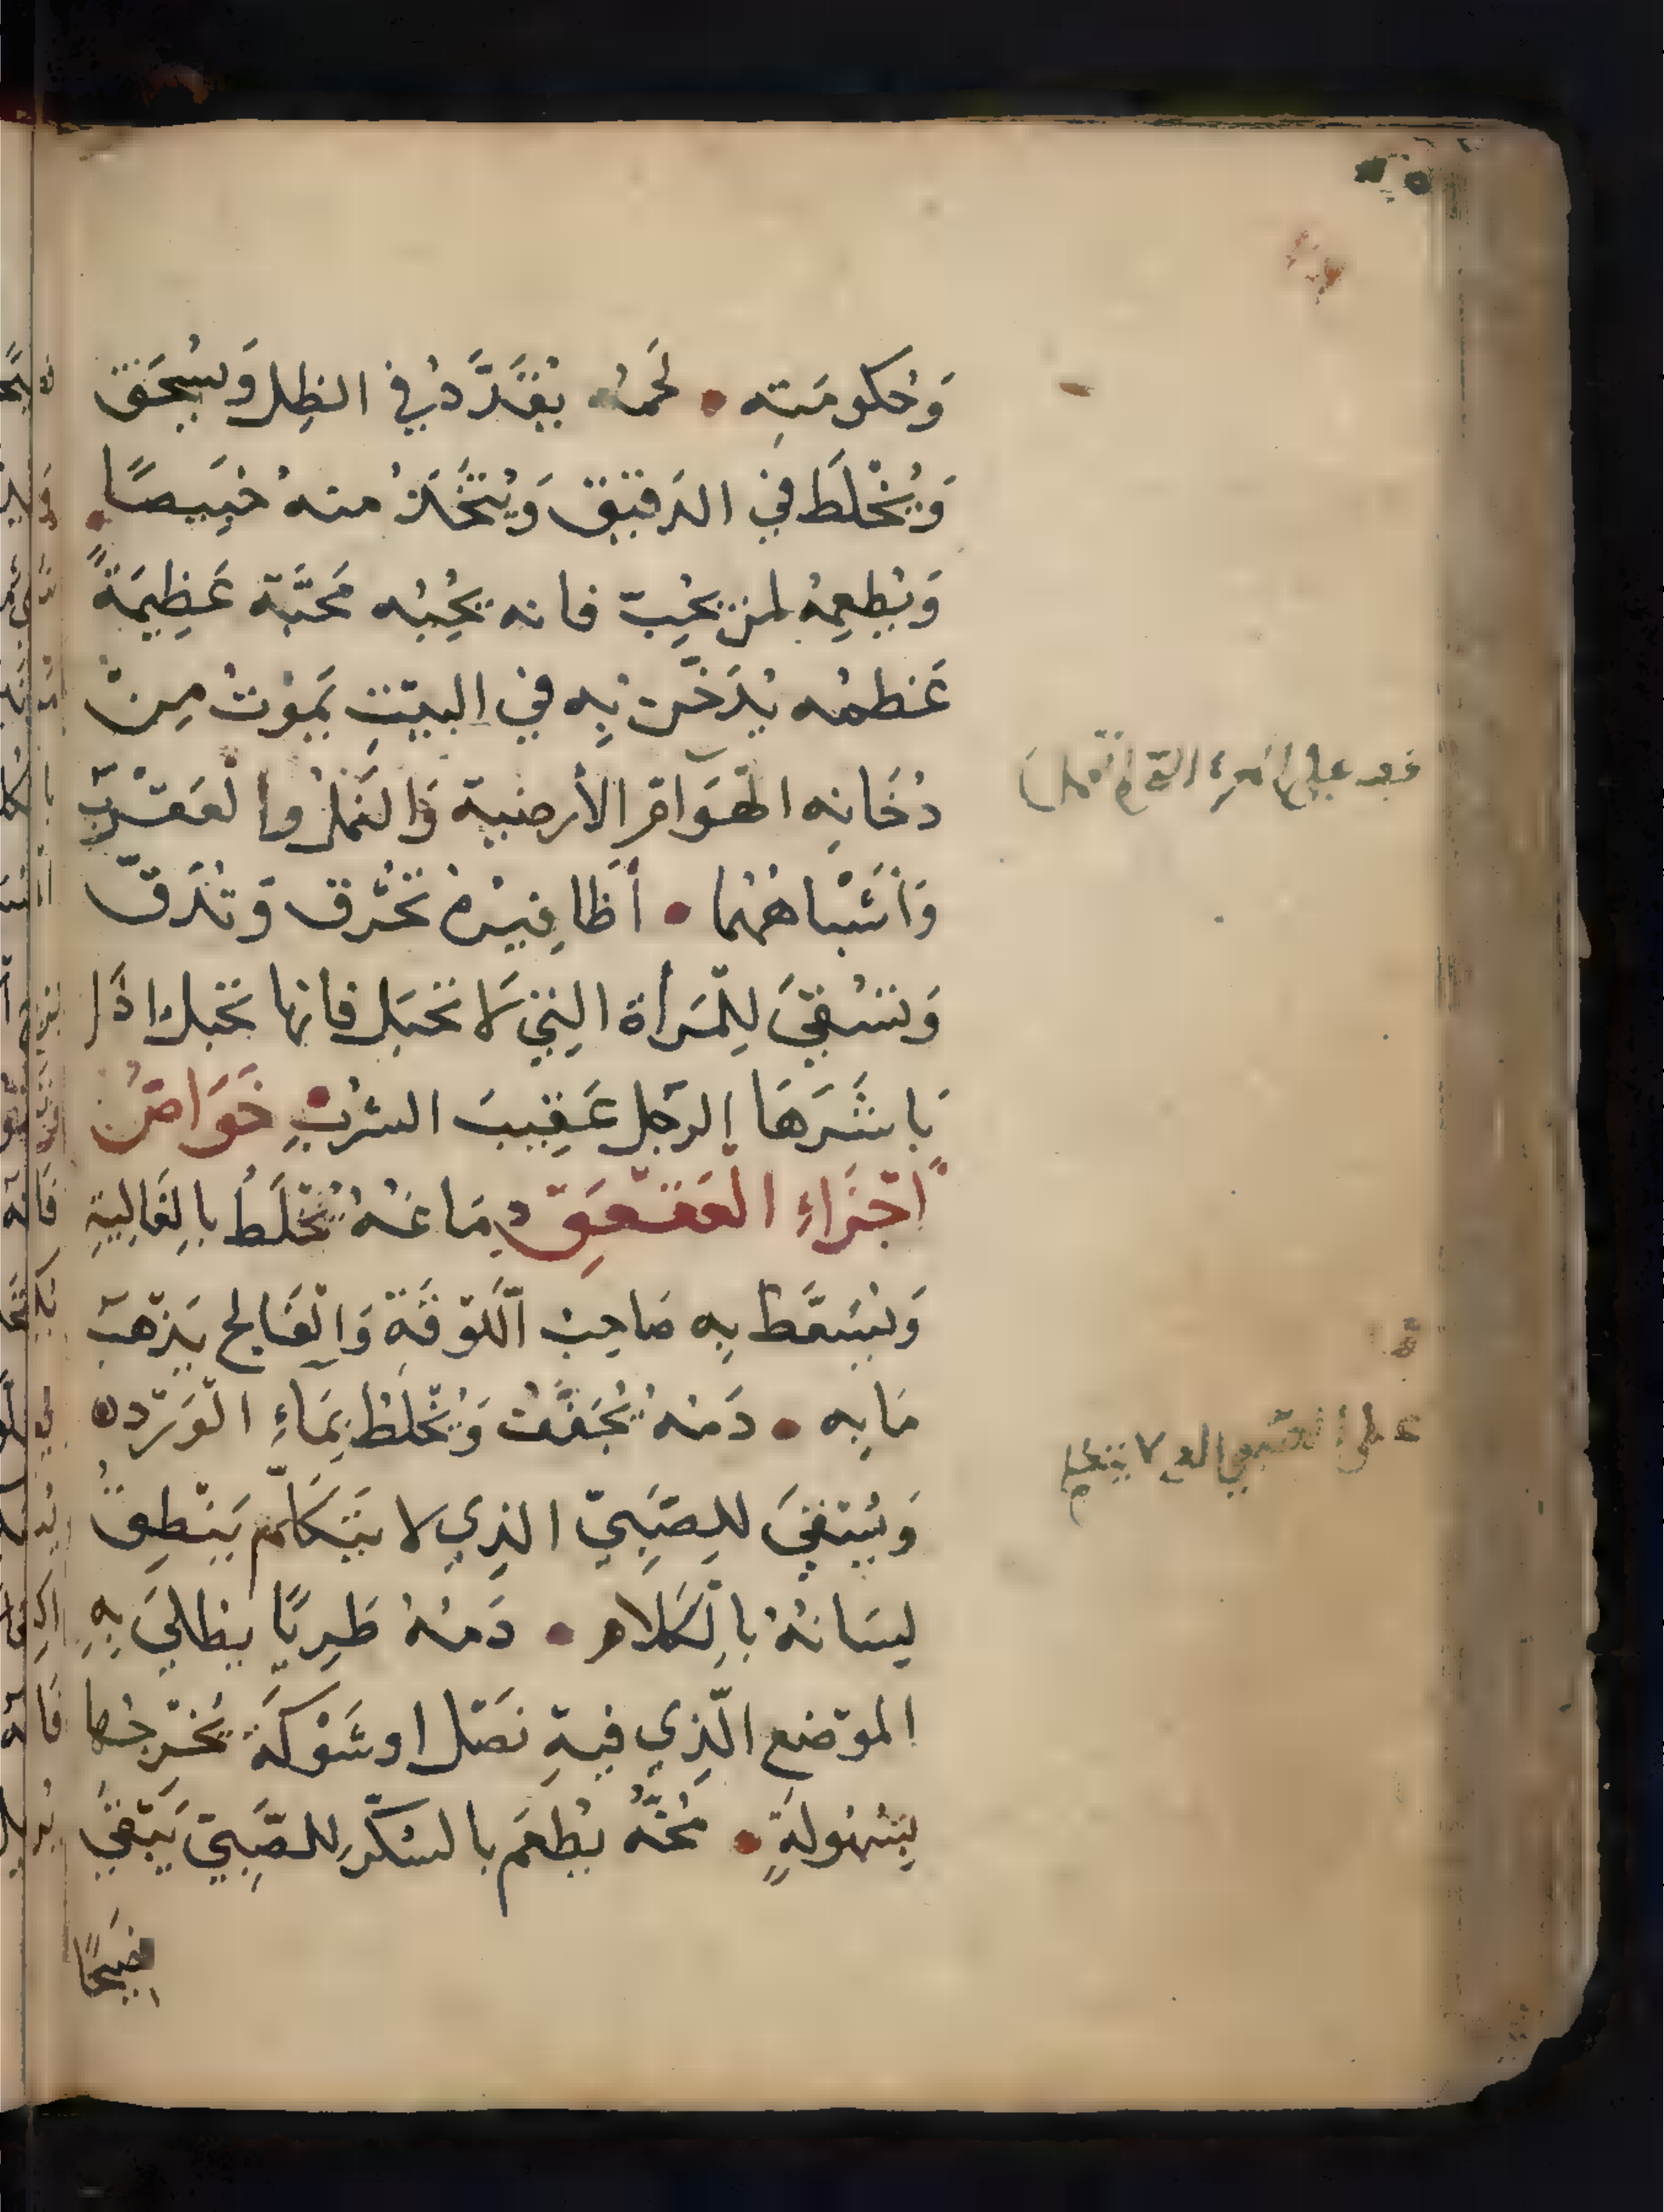 وَحُكومَتِه • لَحمُه يُقَدَّدُ في الظِل وَيُسْحَق
وَيُخْلَط في الدَقيق وَيُتَّخَذُ منهُ خَبيصًا •
وَيُطعِمُهُ لمن يُحِبّ فانه يُحِبُه مَحَبَّة عَظِيمَةً
عَظمُه يُدَخَّن بِه في البيْتِ يَمُوتُ مِنْ
دُخَانِه الهَوَامّ الأرضية وَالنَمْلُ والْعَقْرَبْ
وَأشْبَاههُما • أظَافيرُهُ تُحْرَق وَتُدَقّ
وَتُسْقَىَ لِلْمَرأة التِي لَا تَحبَل فانها تَحبلُ اذَا
بَاشَرَهَا الرجُل عَقِيبَ الشُرْبِ • خَوَاصُّ
أجْزَاءِ الْعَقْعَقِ دِمَاغهُ يُخْلَطُ بالِغَالِيَةِ
وَيُسَعَّط بِه صَاحِبُ اللَّوْقَةِ وَالْفَالِج يَذْهَبْ
مَابِه • دَمهُ يُجَفَّفُ وَيُخْلَطُ بِمَاءِ الْوَرْدِ •
وَيُسْقىَ لِلصَبِيّ الذِي لا يَتَكَلَّم يَنْطِقُ
لِسَانُهُ بالِكَلام • دَمهُ طَرِيًّا يطلىَ بِهِ
الموْضع الَّذِي فيهِ نَصْل اوشَوْكَة يُخْرِجُها
بِسُهُولَةٍ • مُخّهُ يُطعَم بالسُكّر لِلصَّبِيّ يَبْقىَ
فصيحًا
على الصبي الذي لا يتكلم